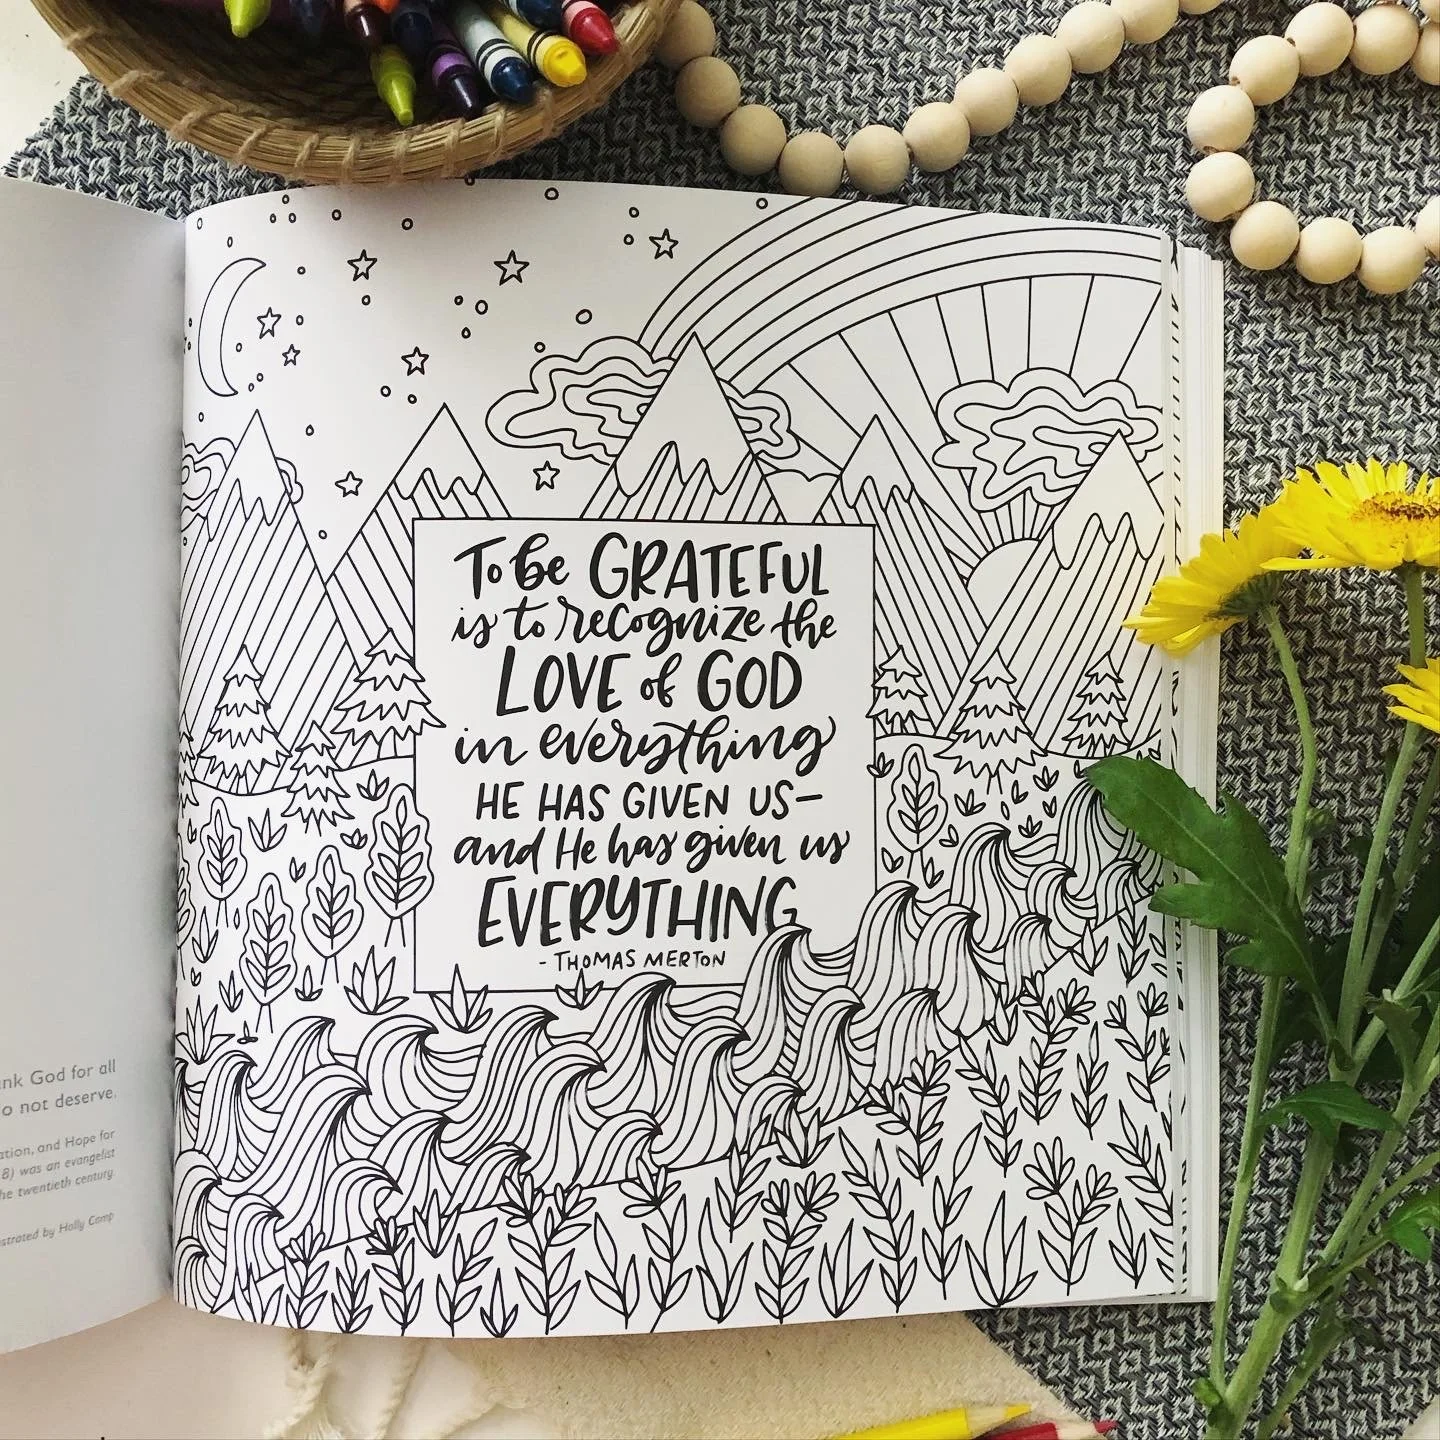 To be GRATEFUL
is to recognize the
LOVE of GOD
in everything
HE HAS GIVEN US—
and He has given us
EVERYTHING
- THOMAS MERTON
God for all
not deserve.
and Hope for
was an evangelist
twentieth century.
by Holly Camp